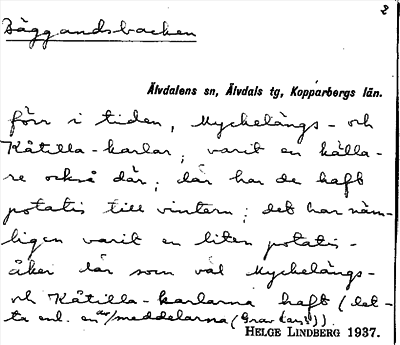 2
Bäggandsbacken
Älvdalens sn, Älvdals tg, Kopparbergs län.
förr i tiden, Myckelängs- och
Kåtilla-karlar, varit en källa-
re också där; där har de haft
potatis till vintern; det har näm-
ligen varit en liten potatis-
åker där som väl Myckelängs-
och Kåtilla-karlarna haft (det-
ta enl. en av meddelarna (Gravdan?)).
HELGE LINDBERG 1937.